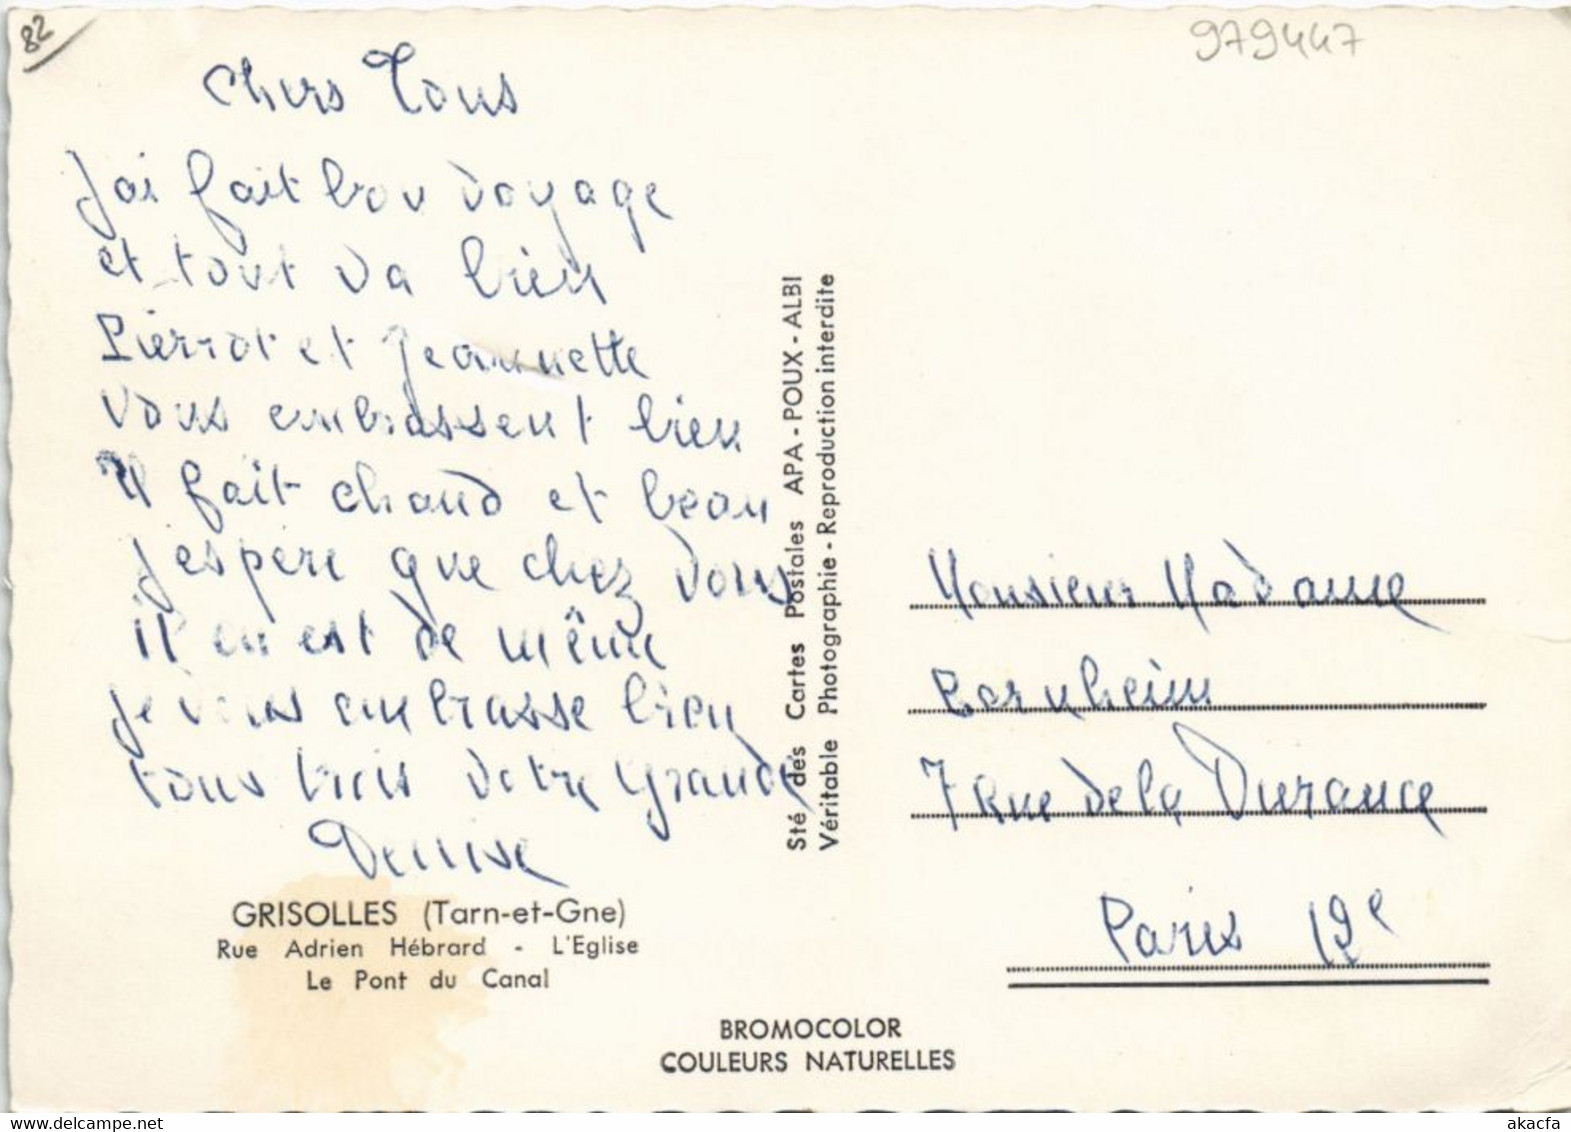 82
979447
Chers Tous
J'ai fait bon voyage
et tout va bien
Pierrot et Jeannette
vous embrassent bien
Il fait chaud et beau
j'espère que chez vous
il en est de même
je vous embrasse bien
tous trois votre grande
Denise
GRISOLLES (Tarn-et-Gne)
Rue Adrien Hébrard - L'Eglise
Le Pont du Canal
Sté des Cartes Postales APA - POUX - ALBI
Véritable Photographie - Reproduction interdite
BROMOCOLOR
COULEURS NATURELLES
Monsieur Madame
Bernheim
7 Rue de la Durance
Paris 12e
www.delcampe.net
akacfa